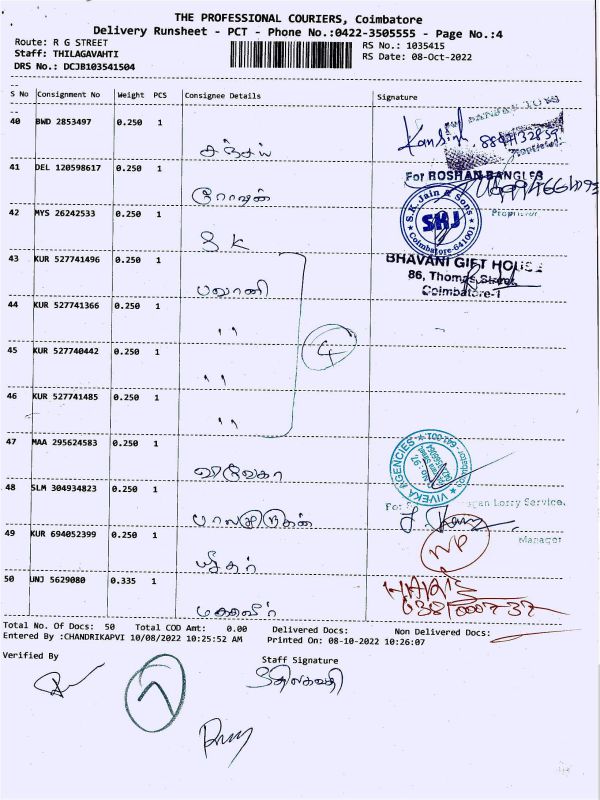 THE PROFESSIONAL COURIERS, Coimbatore
Delivery Runsheet - PCT - Phone No.:0422-3505555 - Page No.:4
Route: R G STREET
RS No.: 1035415
Staff: THILAGAVAHTI
RS Date: 08-Oct-2022
DRS No.: DCJB103541504
S No Consignment No Weight PCS Consignee Details Signature
40 BWD 2853497 0.250 1
சஞ்சய்
41 DEL 120598617 0.250 1
For ROSHAN BANGLES
ரோஷன்
Proprietor
42 MYS 26242533 0.250 1
S.K. Jain & Sons
SKJ
Coimbatore-641001
S K
43 KUR 527741496 0.250 1
BHAVANI GIFT HOUSE
86, Thomas Street,
Coimbatore-1
பவானி
44 KUR 527741366 0.250 1
" "
4
45 KUR 527740442 0.250 1
" "
46 KUR 527741485 0.250 1
" "
47 MAA 295624583 0.250 1
VIVEKA AGENCIES
விவேகா
48 SLM 304934823 0.250 1
Lorry Service,
பாலமுருகன்
Manager
49 KUR 694052399 0.250 1
NP
ஸ்ரீதர்
50 UNJ 5629080 0.335 1
மகாவீர்
Total No. Of Docs: 50 Total COD Amt: 0.00 Delivered Docs: Non Delivered Docs:
Entered By :CHANDRIKAPVI 10/08/2022 10:25:52 AM Printed On: 08-10-2022 10:26:07
Verified By
Staff Signature
7